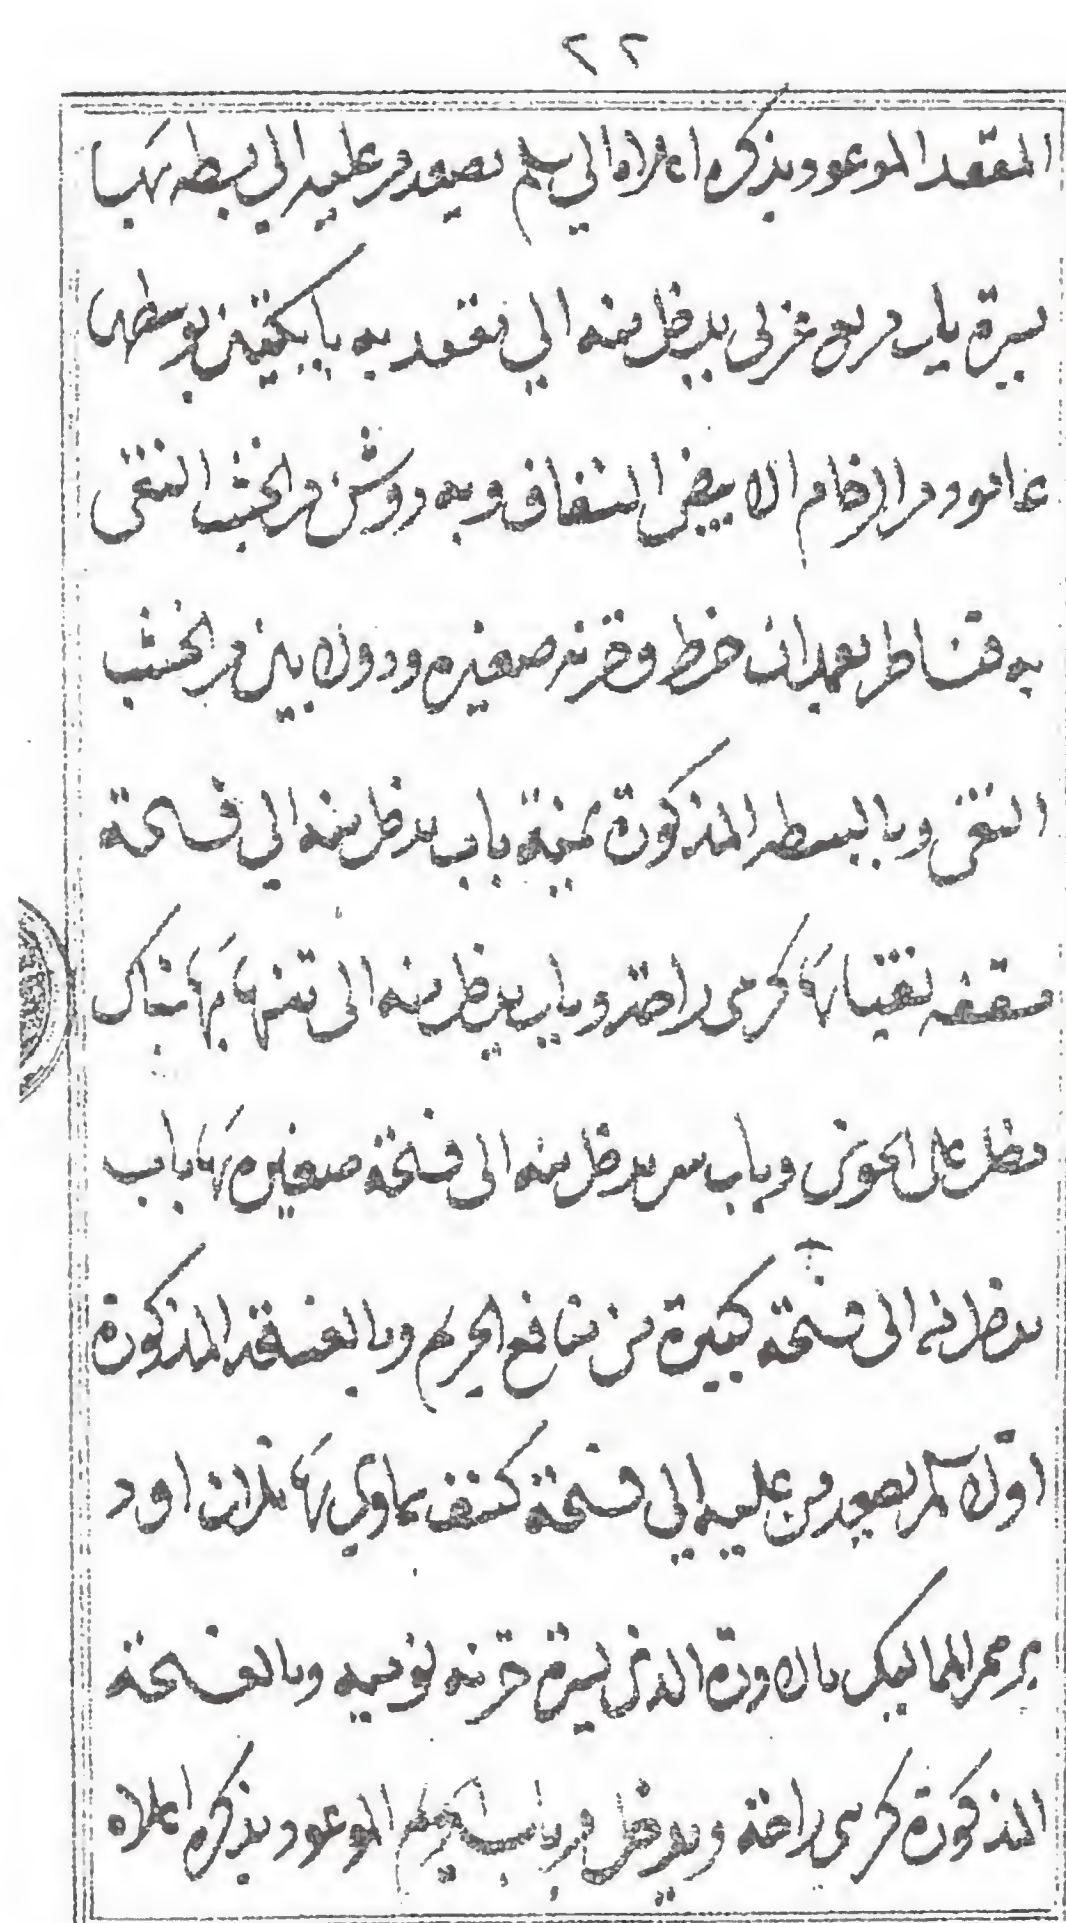 ٢٢
المقعد الموعود بذكره اعلاه الي سلم يصعد من عليه الي بسطه بها
يسرة باب مربع عربي يدخل منه الي مقعد به بايكتين بوسطهما
عامود من الرخام الابيض الشفاف وبه روشن من الخشب النقي
به قناطر بعمدان خرط وخزنه صغيره ودولابين من الخشب
النقي وبالبسطه المذكورة يمنة باب يدخل منه الي فسحة
مسقفه نقيا بها كرسي راحة وباب يدخل منه الي تنهه بها شباك
مطل علي الحوش وباب سر يدخل منه الي فسحة صغيره بها باب
يدخل منه الي فسحة كبيرة من منافع الحريم وبالفسقه المذكورة
اولا سلم يصعد من عليه الي فسحة كشف سماوي بها ثلاث اود
برسم المماليك بالاودة الذي يسرة خزنه نوميه وبالفسحة
المذكورة كرسي راحة ويدخل من باب الحريم الموعود بذكره اعلاه